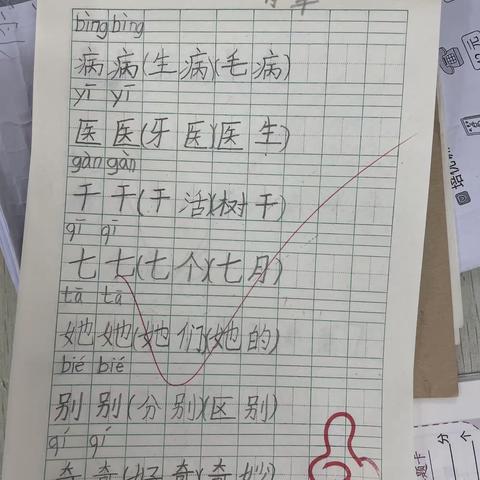 bìng bìng
病 病(生 病)(毛 病)
yī yī
医 医(牙 医)(医 生)
gàn gàn
干 干(干 活)(树 干)
qī qī
七 七(七 个)(七 月)
tā tā
她 她(她 们)(她 的)
bié bié
别 别(分 别)(区 别)
qí qí
奇 奇(好 奇)(奇 妙)